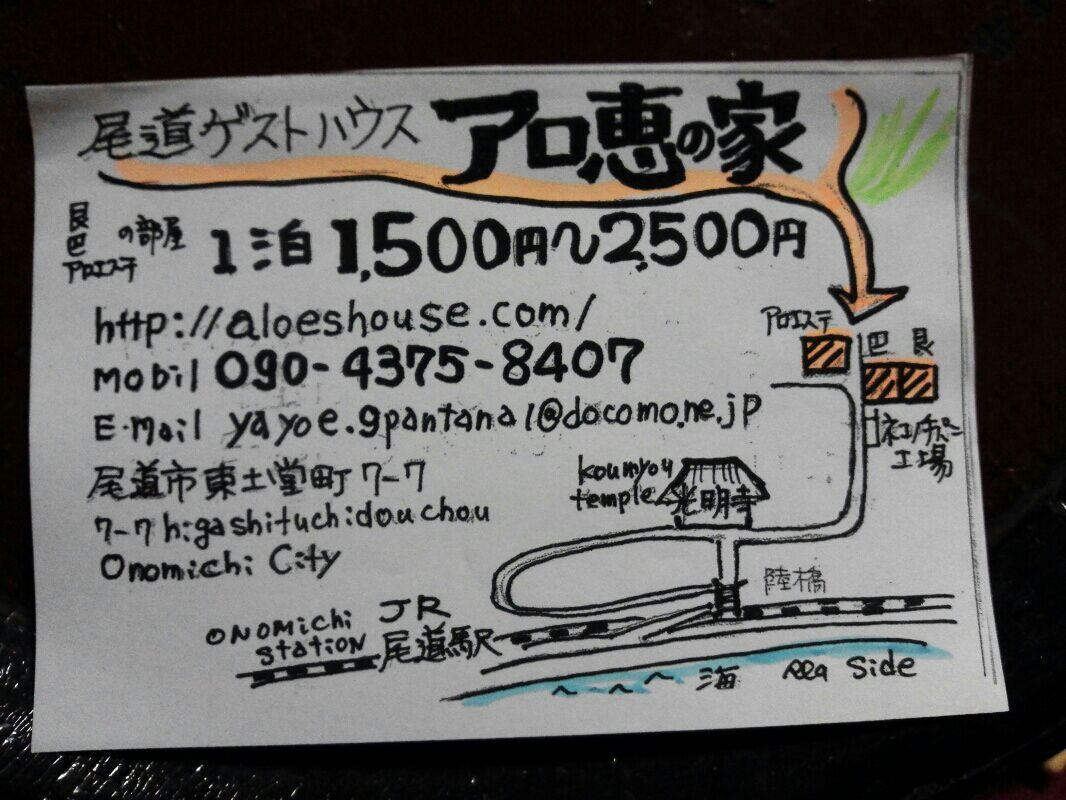 尾道ゲストハウス アロ恵の家
艮
巴
アロエステ
の部屋 1泊 1,500円〜2,500円
http://aloeshouse.com/
mobil 090-4375-8407
E-mail yayoe.gpantanal@docomo.ne.jp
尾道市東土堂町 7-7
7-7 higashituchidouchou
Onomichi City
アロエステ
巴 艮
ネコノテパン
工場
koumyou
temple
光明寺
陸橋
ONOMichi
station
JR
尾道駅
海 sea side